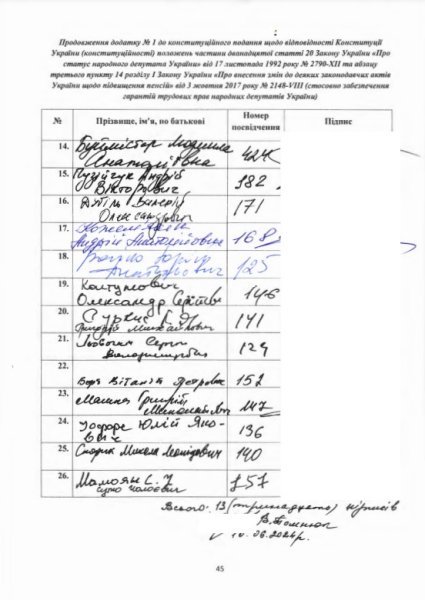 Продовження додатку № 1 до конституційного подання щодо відповідності Конституції
України (конституційності) положень частини дванадцятої статті 20 Закону України «Про
статус народного депутата України» від 17 листопада 1992 року № 2790-ХІІ та абзацу
третього пункту 14 розділу І Закону України «Про внесення змін до деяких законодавчих актів
України щодо підвищення пенсій» від 3 жовтня 2017 року № 2148-VIII (стосовно забезпечення
гарантій трудових прав народних депутатів України)
№ Прізвище, ім'я, по батькові Номер посвідчення Підпис
14. Буймістер Людмила
Анатоліївна 424
15. Пузійчук Андрій
Вікторович 382
16. Валерій
Олександрович 171
17. Кожем'якін
Андрій Анатолійович 168
18. Юрій
Анатолійович 125
19. Колтунович
Олександр Сергійович 146
20. Суркіс Г.
Григорій Михайлович 141
21. Льовочкін Сергій
Володимирович 129
22. Борт Віталій Петрович 152
23. Мамка Григорій
Миколайович 147
24. Юлій Яко-
вич 136
25. Скорик Микола Леонідович 140
26. Мамоян С. Ч.
Суто Чолоєвич 157
Всього: 13 (тринадцять) підписів
10.06.2024р.
45